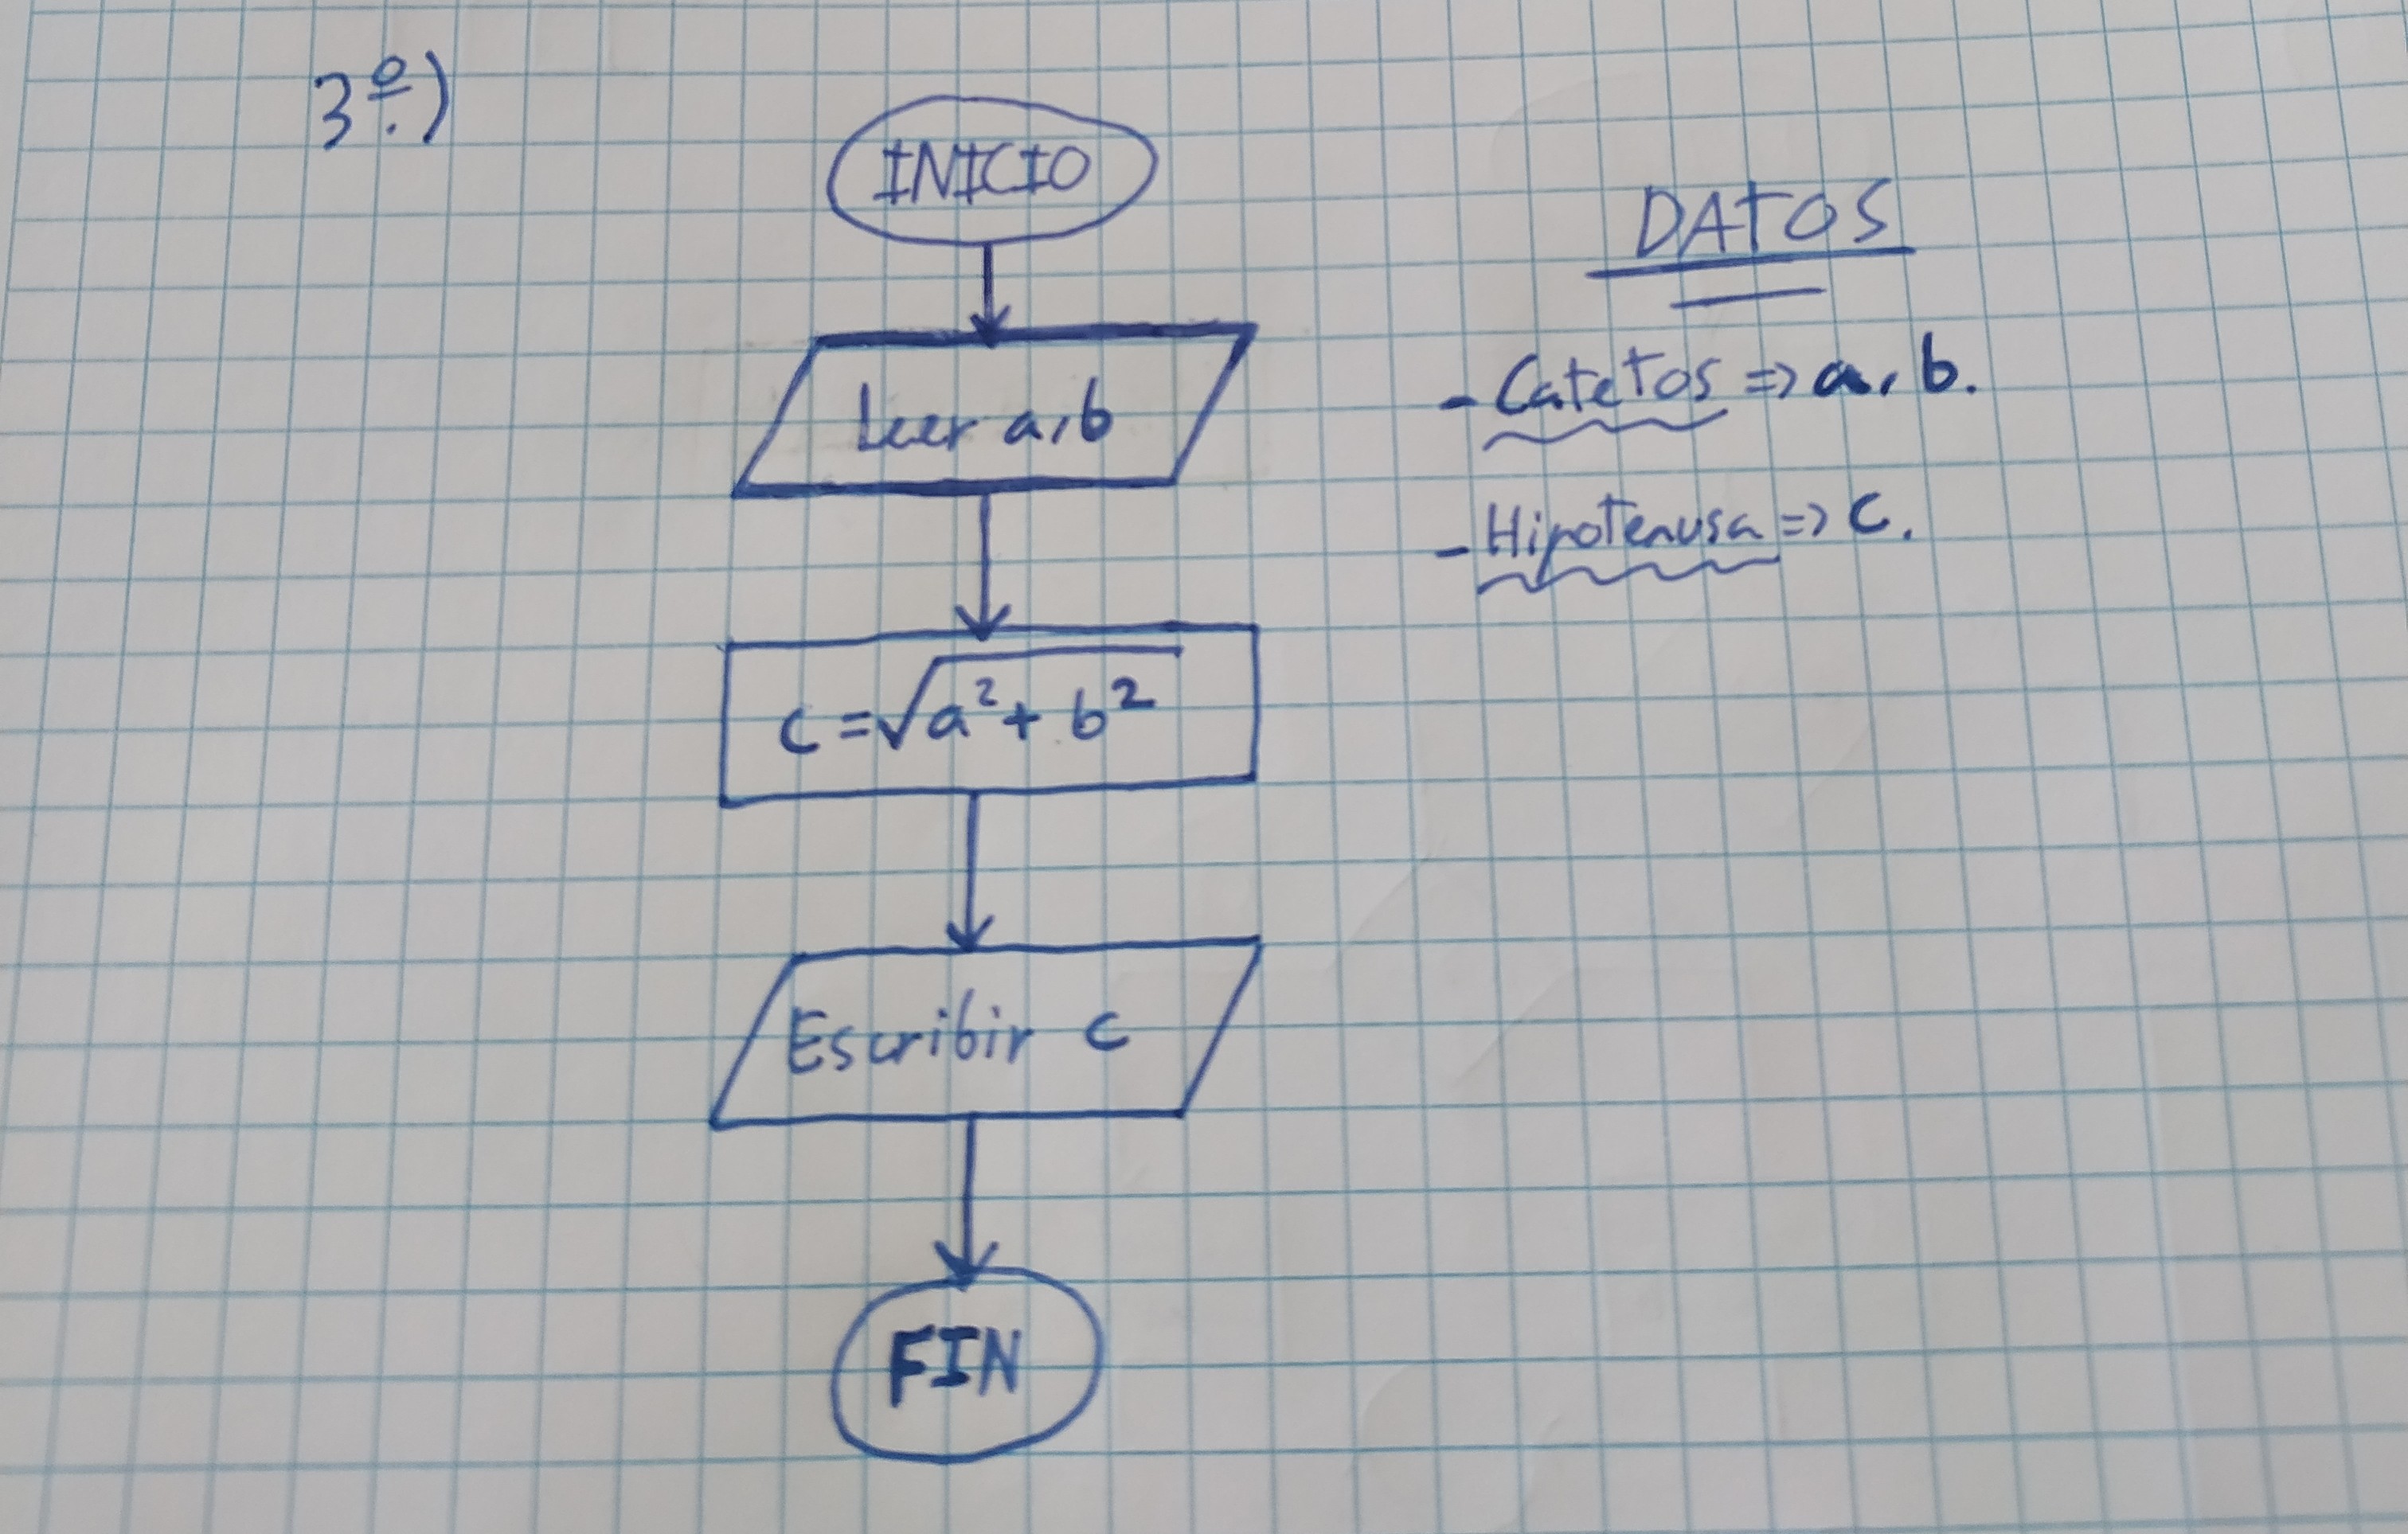 3º.)
INICIO
Leer a, b
c = √a² + b²
Escribir c
FIN
DATOS
- Catetos => a, b.
- Hipotenusa => c.